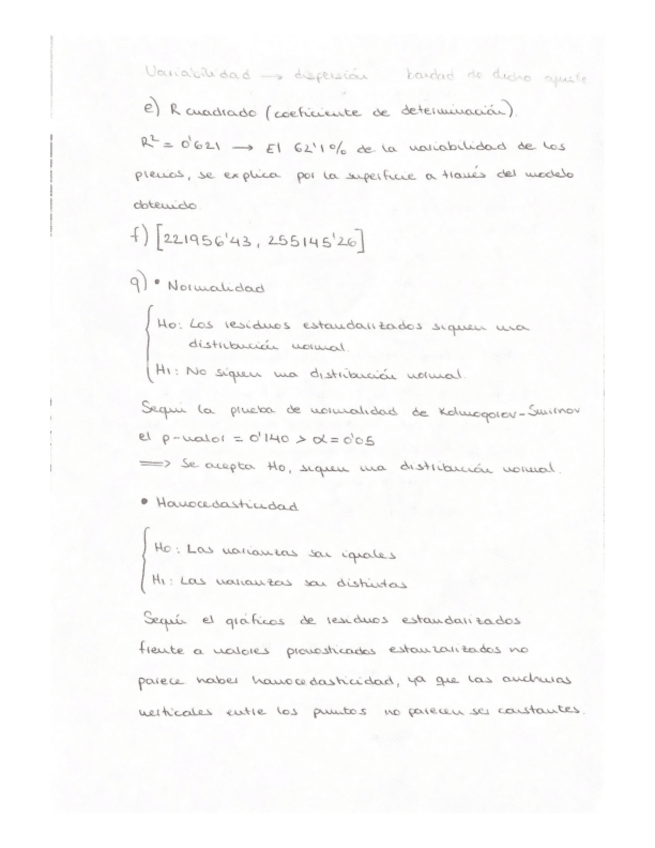 Variabilidad → dispersión bondad de dicho ajuste
e) R cuadrado (coeficiente de determinación).
R² = 0'621 → El 62'1% de la variabilidad de los
precios, se explica por la superficie a través del modelo
obtenido.
f) [221956'43, 255145'26]
g) • Normalidad
H0: Los residuos estandarizados siguen una
distribución normal.
H1: No siguen una distribución normal.
Según la prueba de normalidad de Kolmogorov-Smirnov
el p-valor = 0'140 > α = 0'05
⟹ Se acepta H0, siguen una distribución normal.
• Homocedasticidad
H0: Las varianzas son iguales
H1: Las varianzas son distintas
Según el gráficos de residuos estandarizados
frente a valores pronosticados estandarizados no
parece haber homocedasticidad, ya que las anchuras
verticales entre los puntos no parecen ser constantes.